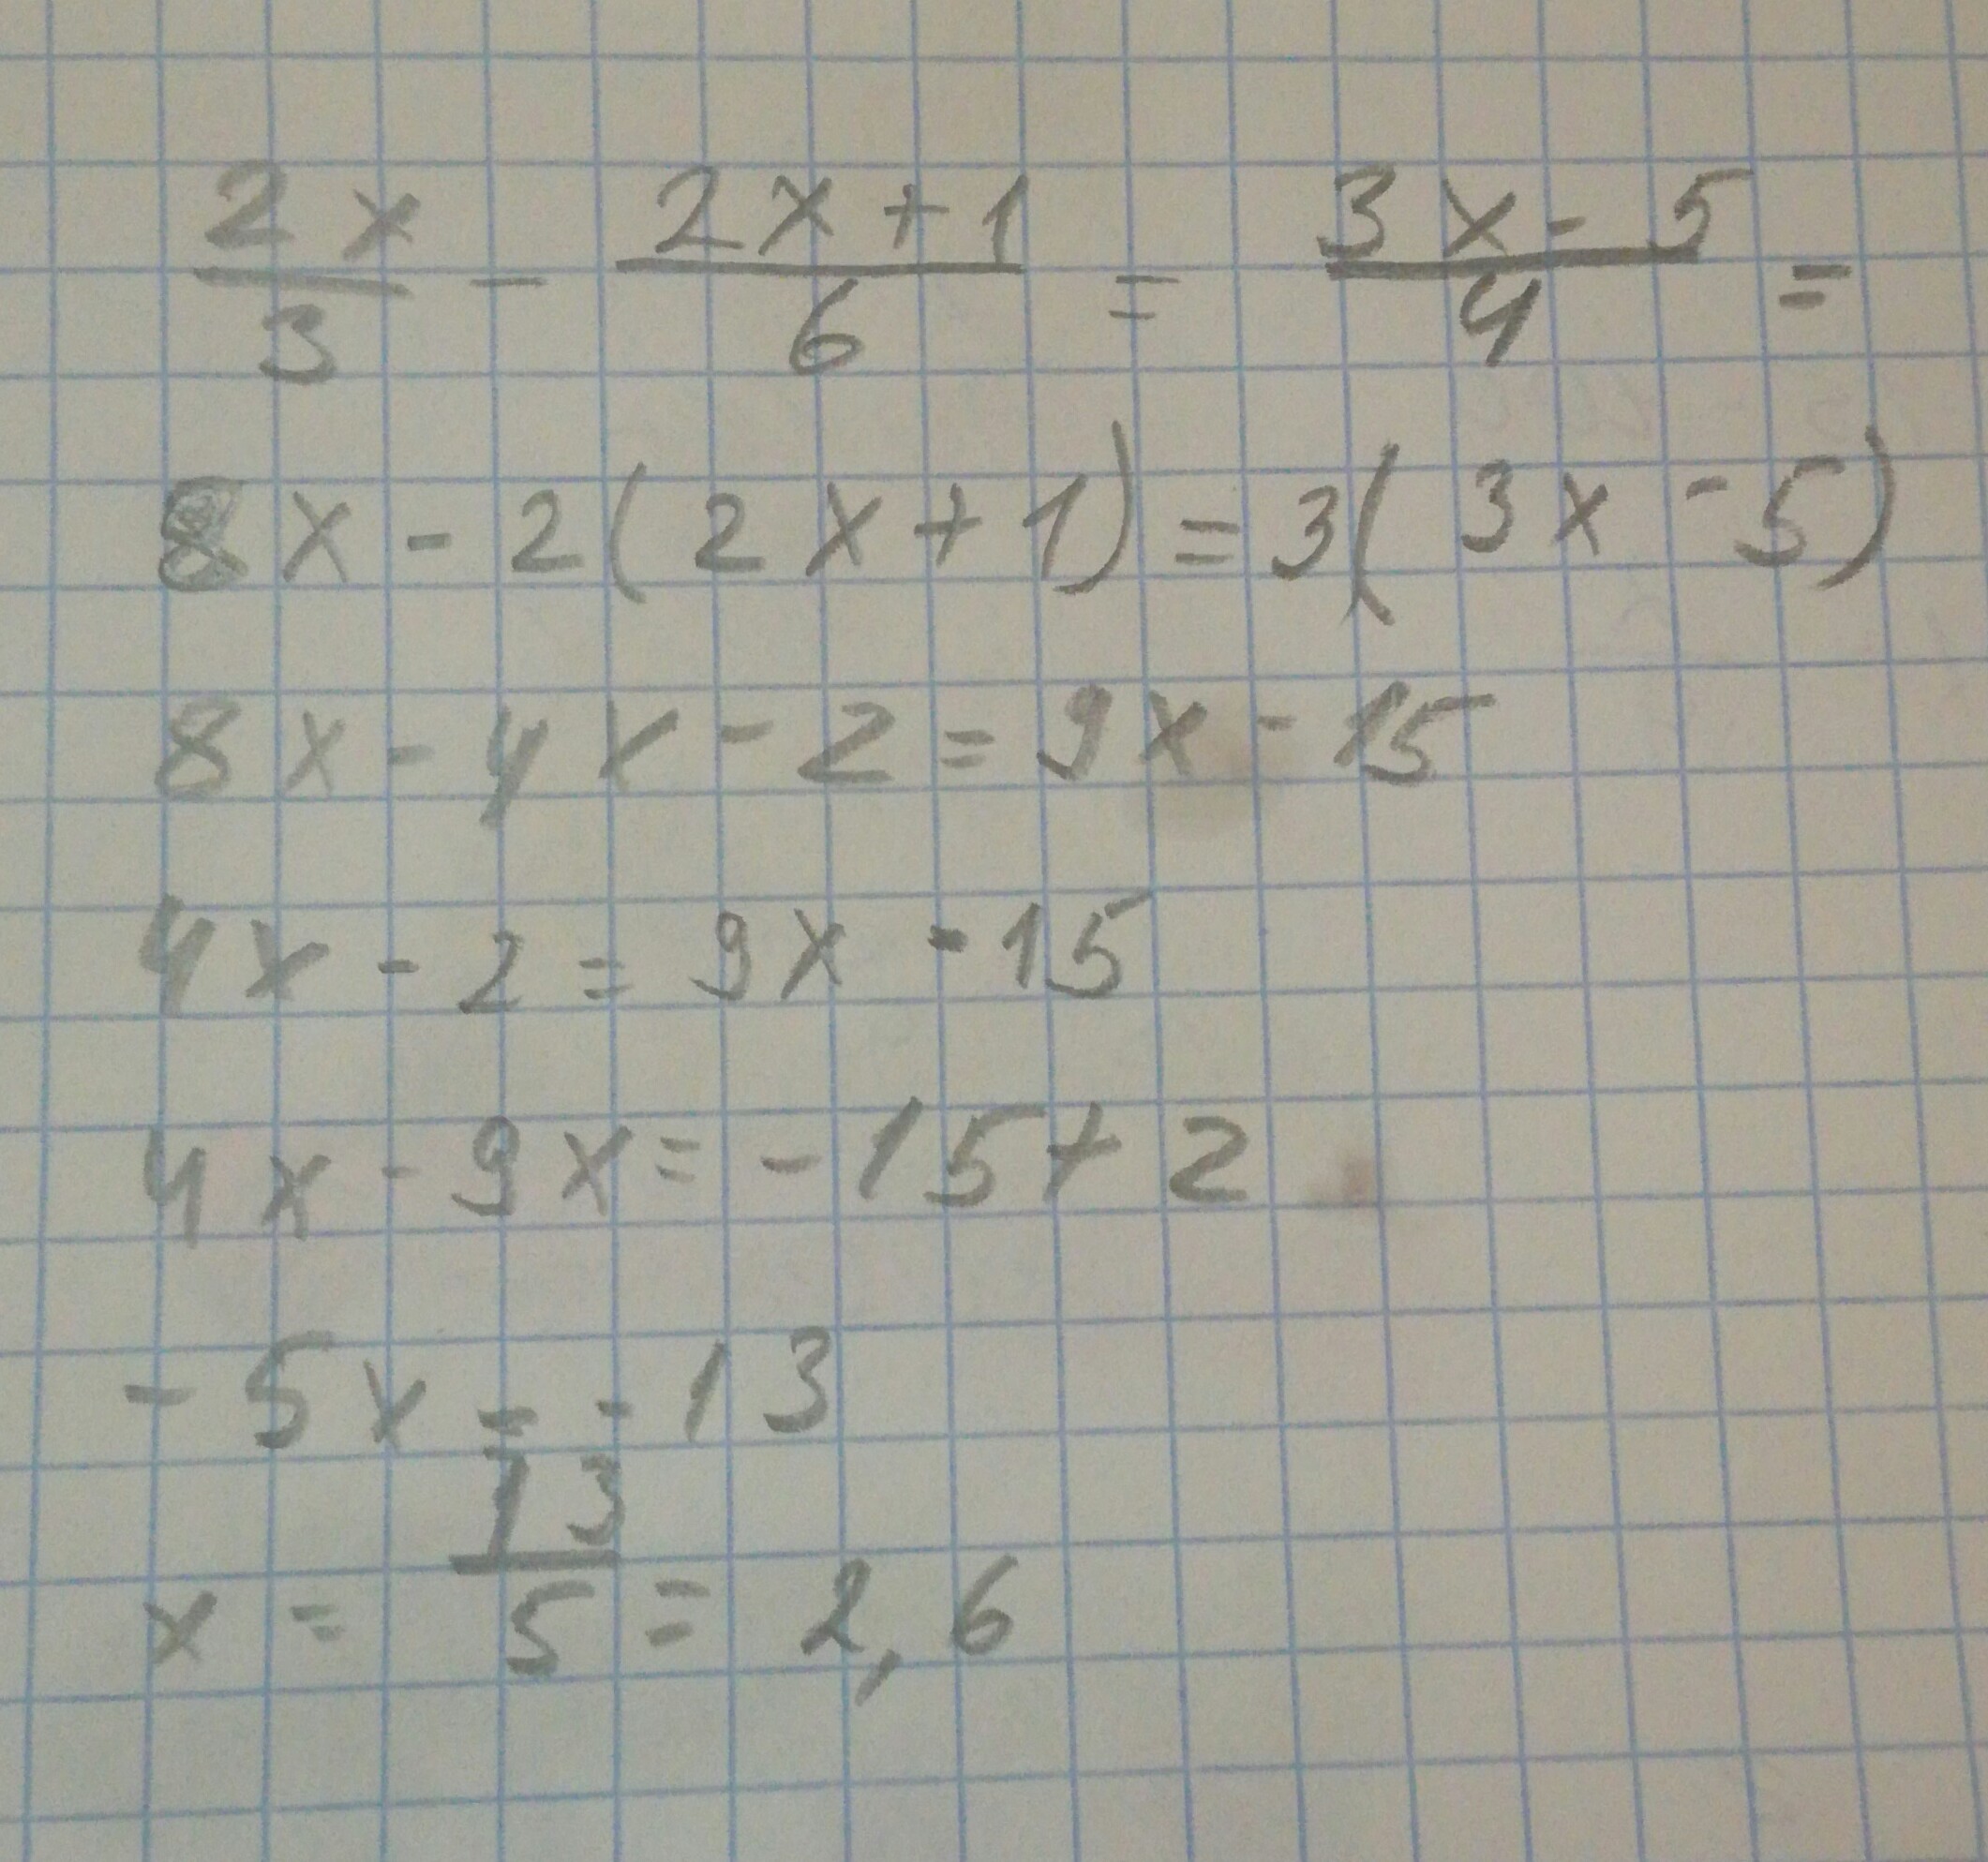 2x/3 - 2x+1/6 = 3x-5/4 =
8x - 2(2x+1) = 3(3x-5)
8x - 4x - 2 = 9x - 15
4x - 2 = 9x - 15
4x - 9x = -15 + 2
-5x = -13
x = 13/5 = 2,6